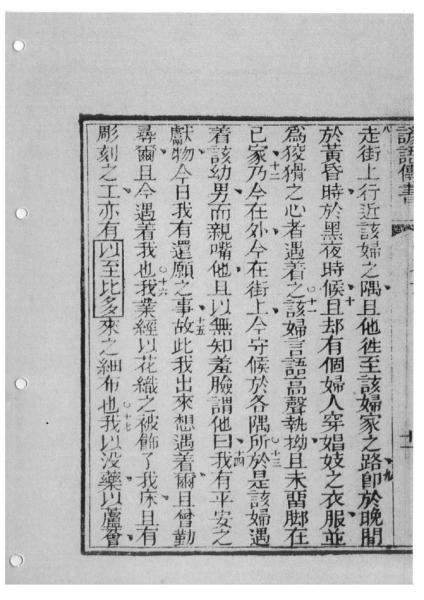 諺語傳書
八走街上行近該婦之隅且他徃至該婦家之路卽於晚間九
於黃昏時於黑夜時候且却有個婦人穿娼妓之衣服並十
為狡猾之心者遇着之該婦言語高聲執拗且未畱脚在十一
已家乃今在外今在街上今守候於各隅所於是該婦遇十二 十三
着該幼男而親嘴他且以無知羞臉謂他曰我有平安之十四
獻物今日我有還願之事故此我出來想遇着爾且曾勤十五
尋爾且今遇着我也我業經以花織之被飾了我床且有十六
彫刻之工亦有以至比多來之細布也我以没藥以蘆薈十七